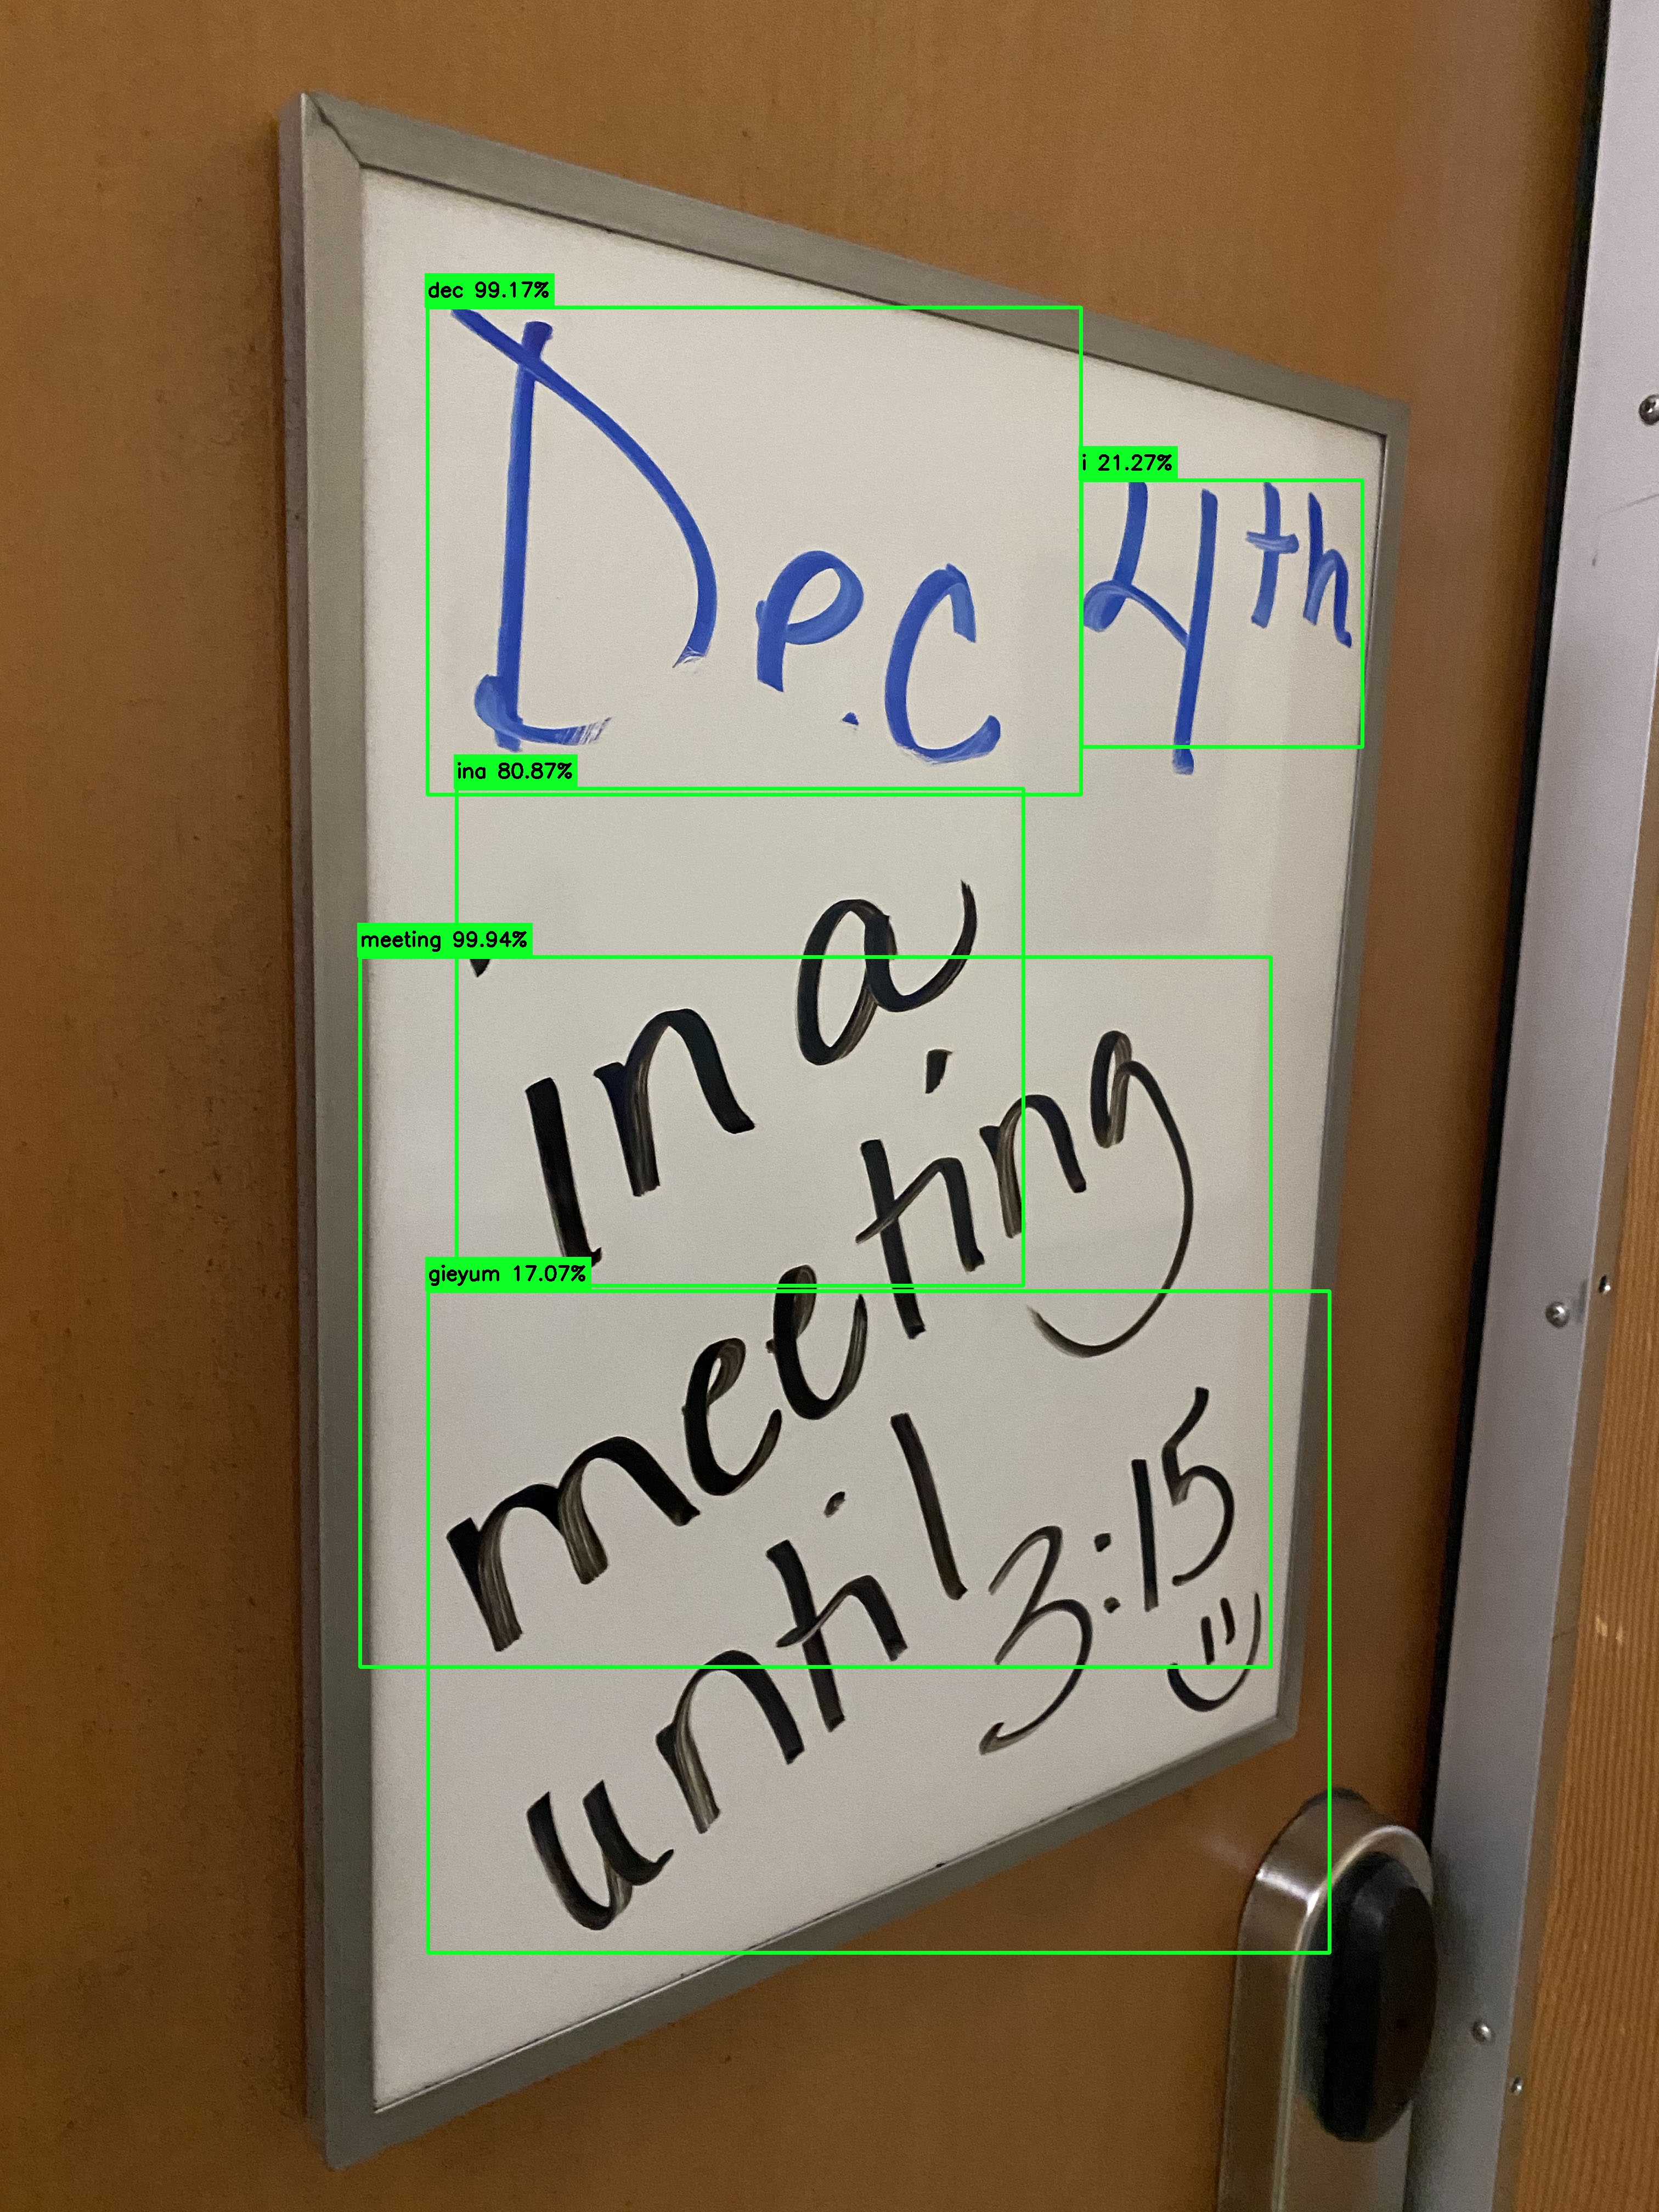 dec 99.17%
Dec 4th
i 21.27%
ina 80.87%
In a
meeting 99.94%
meeting
gieyum 17.07%
until 3:15